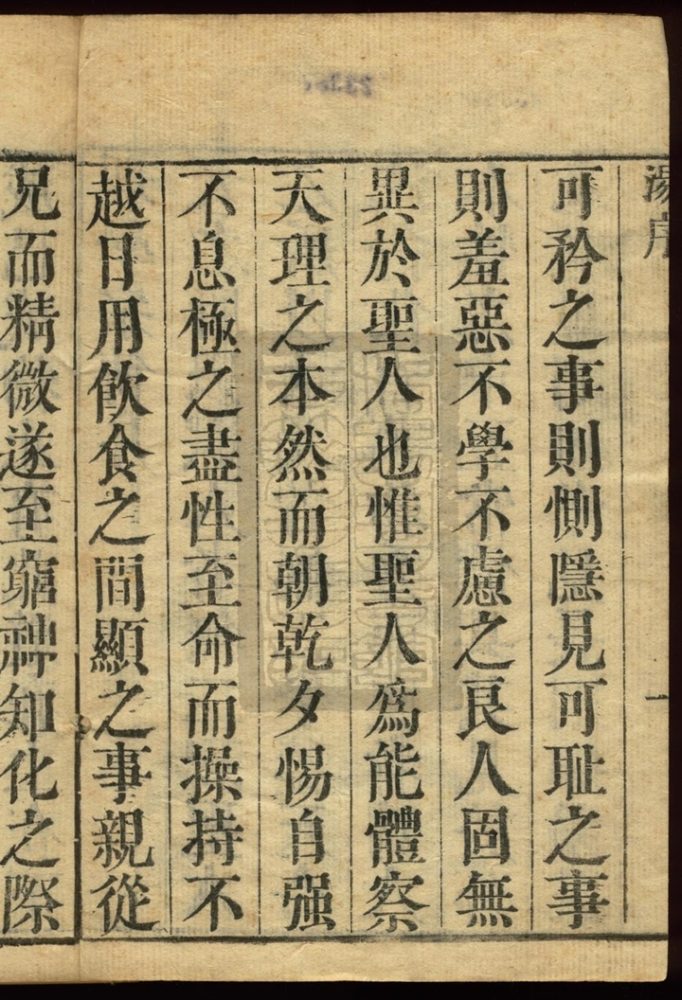 湯序
一
可矜之事則惻隱見可耻之事
則羞惡不學不慮之良人固無
異於聖人也惟聖人爲能體察
天理之本然而朝乾夕惕自强
不息極之盡性至命而操持不
越日用飲食之間顯之事親從
兄而精微遂至窮神知化之際